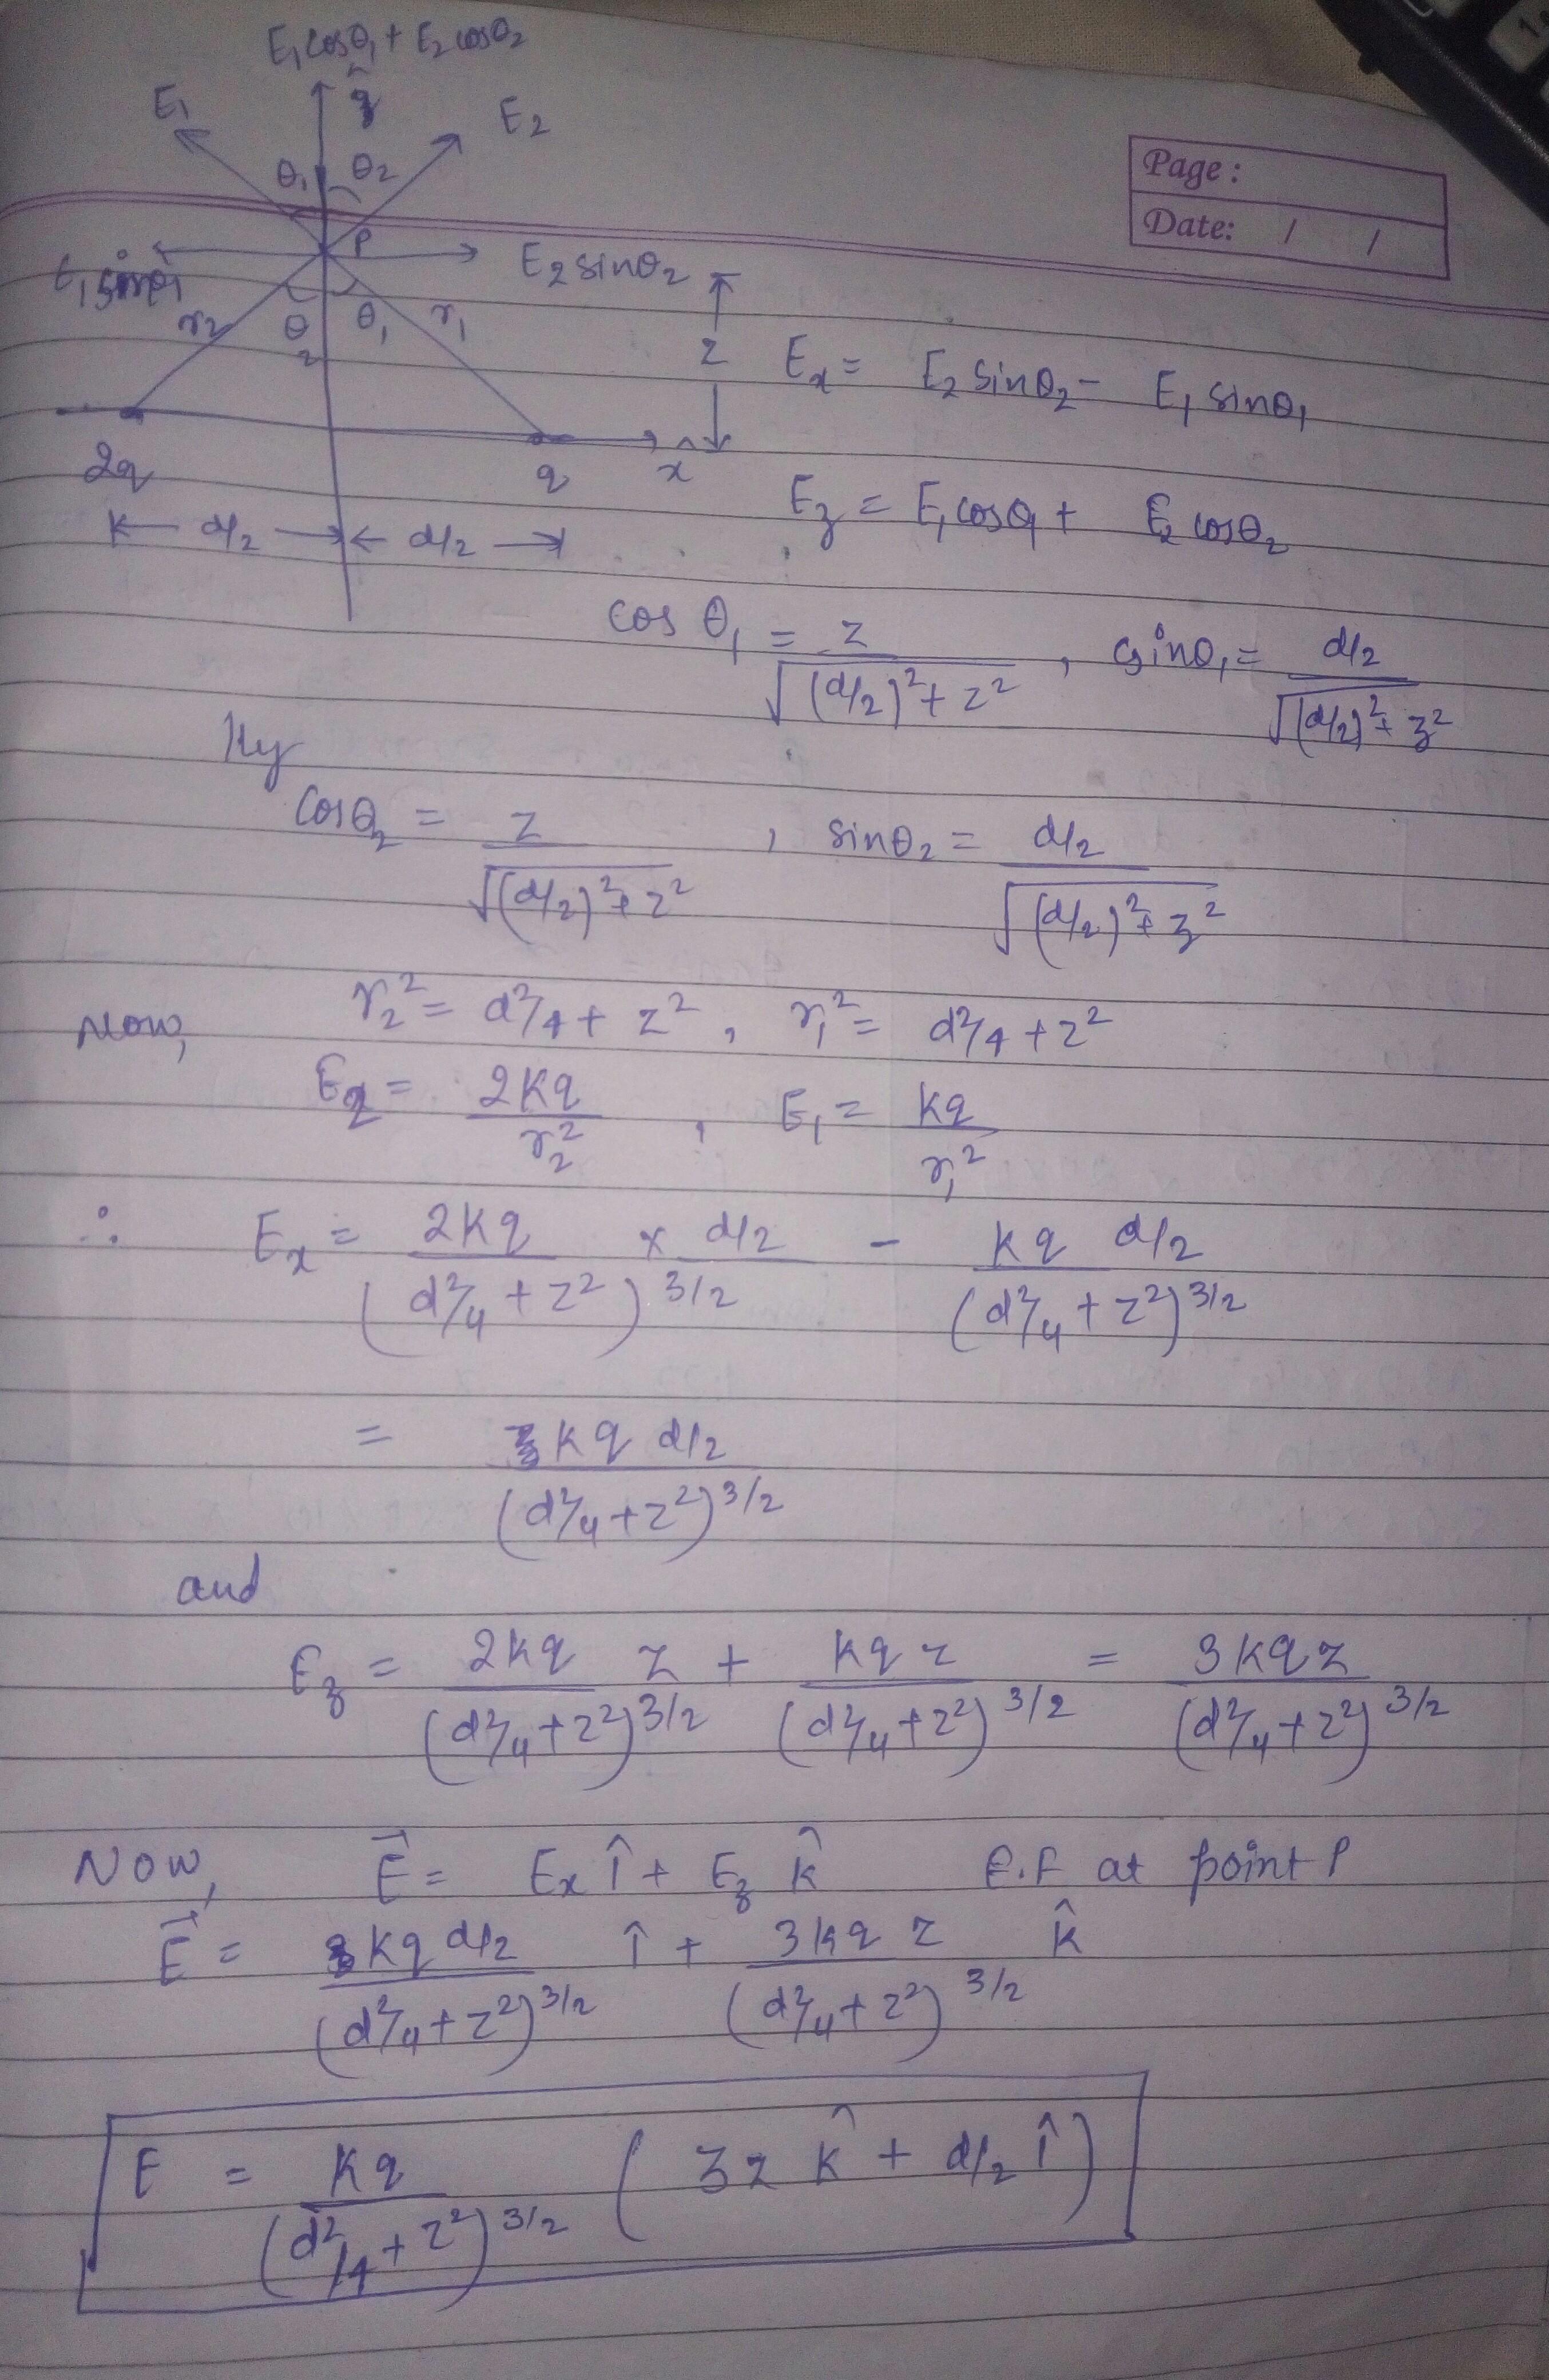 E₁cosθ₁ + E₂cosθ₂
ẑ
E₁
E₂
θ₁ θ₂
Page :
Date: / /
P
E₁sinθ₁
E₂sinθ₂
r₂ θ₂ θ₁ r₁
z
Eₓ = E₂ sinθ₂ - E₁ sinθ₁
2q q x̂
d/2 d/2
E_z = E₁cosθ₁ + E₂ cosθ₂
cos θ₁ = z / √((d/2)² + z²) , sinθ₁ = d/2 / √((d/2)² + z²)
lly
cosθ₂ = z / √((d/2)² + z²) , sinθ₂ = d/2 / √((d/2)² + z²)
Now, r₂² = d²/4 + z² , r₁² = d²/4 + z²
E₂ = 2Kq / r₂² , E₁ = Kq / r₁²
∴ Eₓ = 2Kq / (d²/4 + z²)^3/2 × d/2 - Kq d/2 / (d²/4 + z²)^3/2
= Kq d/2 / (d²/4 + z²)^3/2
and
E_z = 2Kq / (d²/4 + z²)^3/2 z + Kq z / (d²/4 + z²)^3/2 = 3Kqz / (d²/4 + z²)^3/2
Now, E⃗ = Eₓ î + E_z k̂ E.F at point P
E⃗ = Kq d/2 / (d²/4 + z²)^3/2 î + 3Kq z / (d²/4 + z²)^3/2 k̂
E = Kq / (d²/4 + z²)^3/2 ( 3z k̂ + d/2 î )